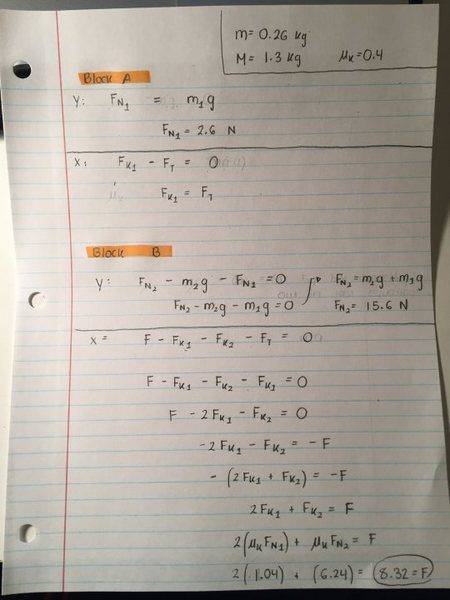 m = 0.26 kg
M = 1.3 kg μK = 0.4
Block A
Y: FN1 = m1g
FN1 = 2.6 N
X: FK1 - FT = 0
FK1 = FT
Block B
Y: FN2 - m2g - FN1 = 0 FN2 = m2g + m1g
FN2 - m2g - m1g = 0 FN2 = 15.6 N
X = F - FK1 - FK2 - FT = 0
F - FK1 - FK2 - FK1 = 0
F - 2FK1 - FK2 = 0
-2FK1 - FK2 = -F
-(2FK1 + FK2) = -F
2FK1 + FK2 = F
2(μKFN1) + μKFN2 = F
2(1.04) + (6.24) = 8.32 = F